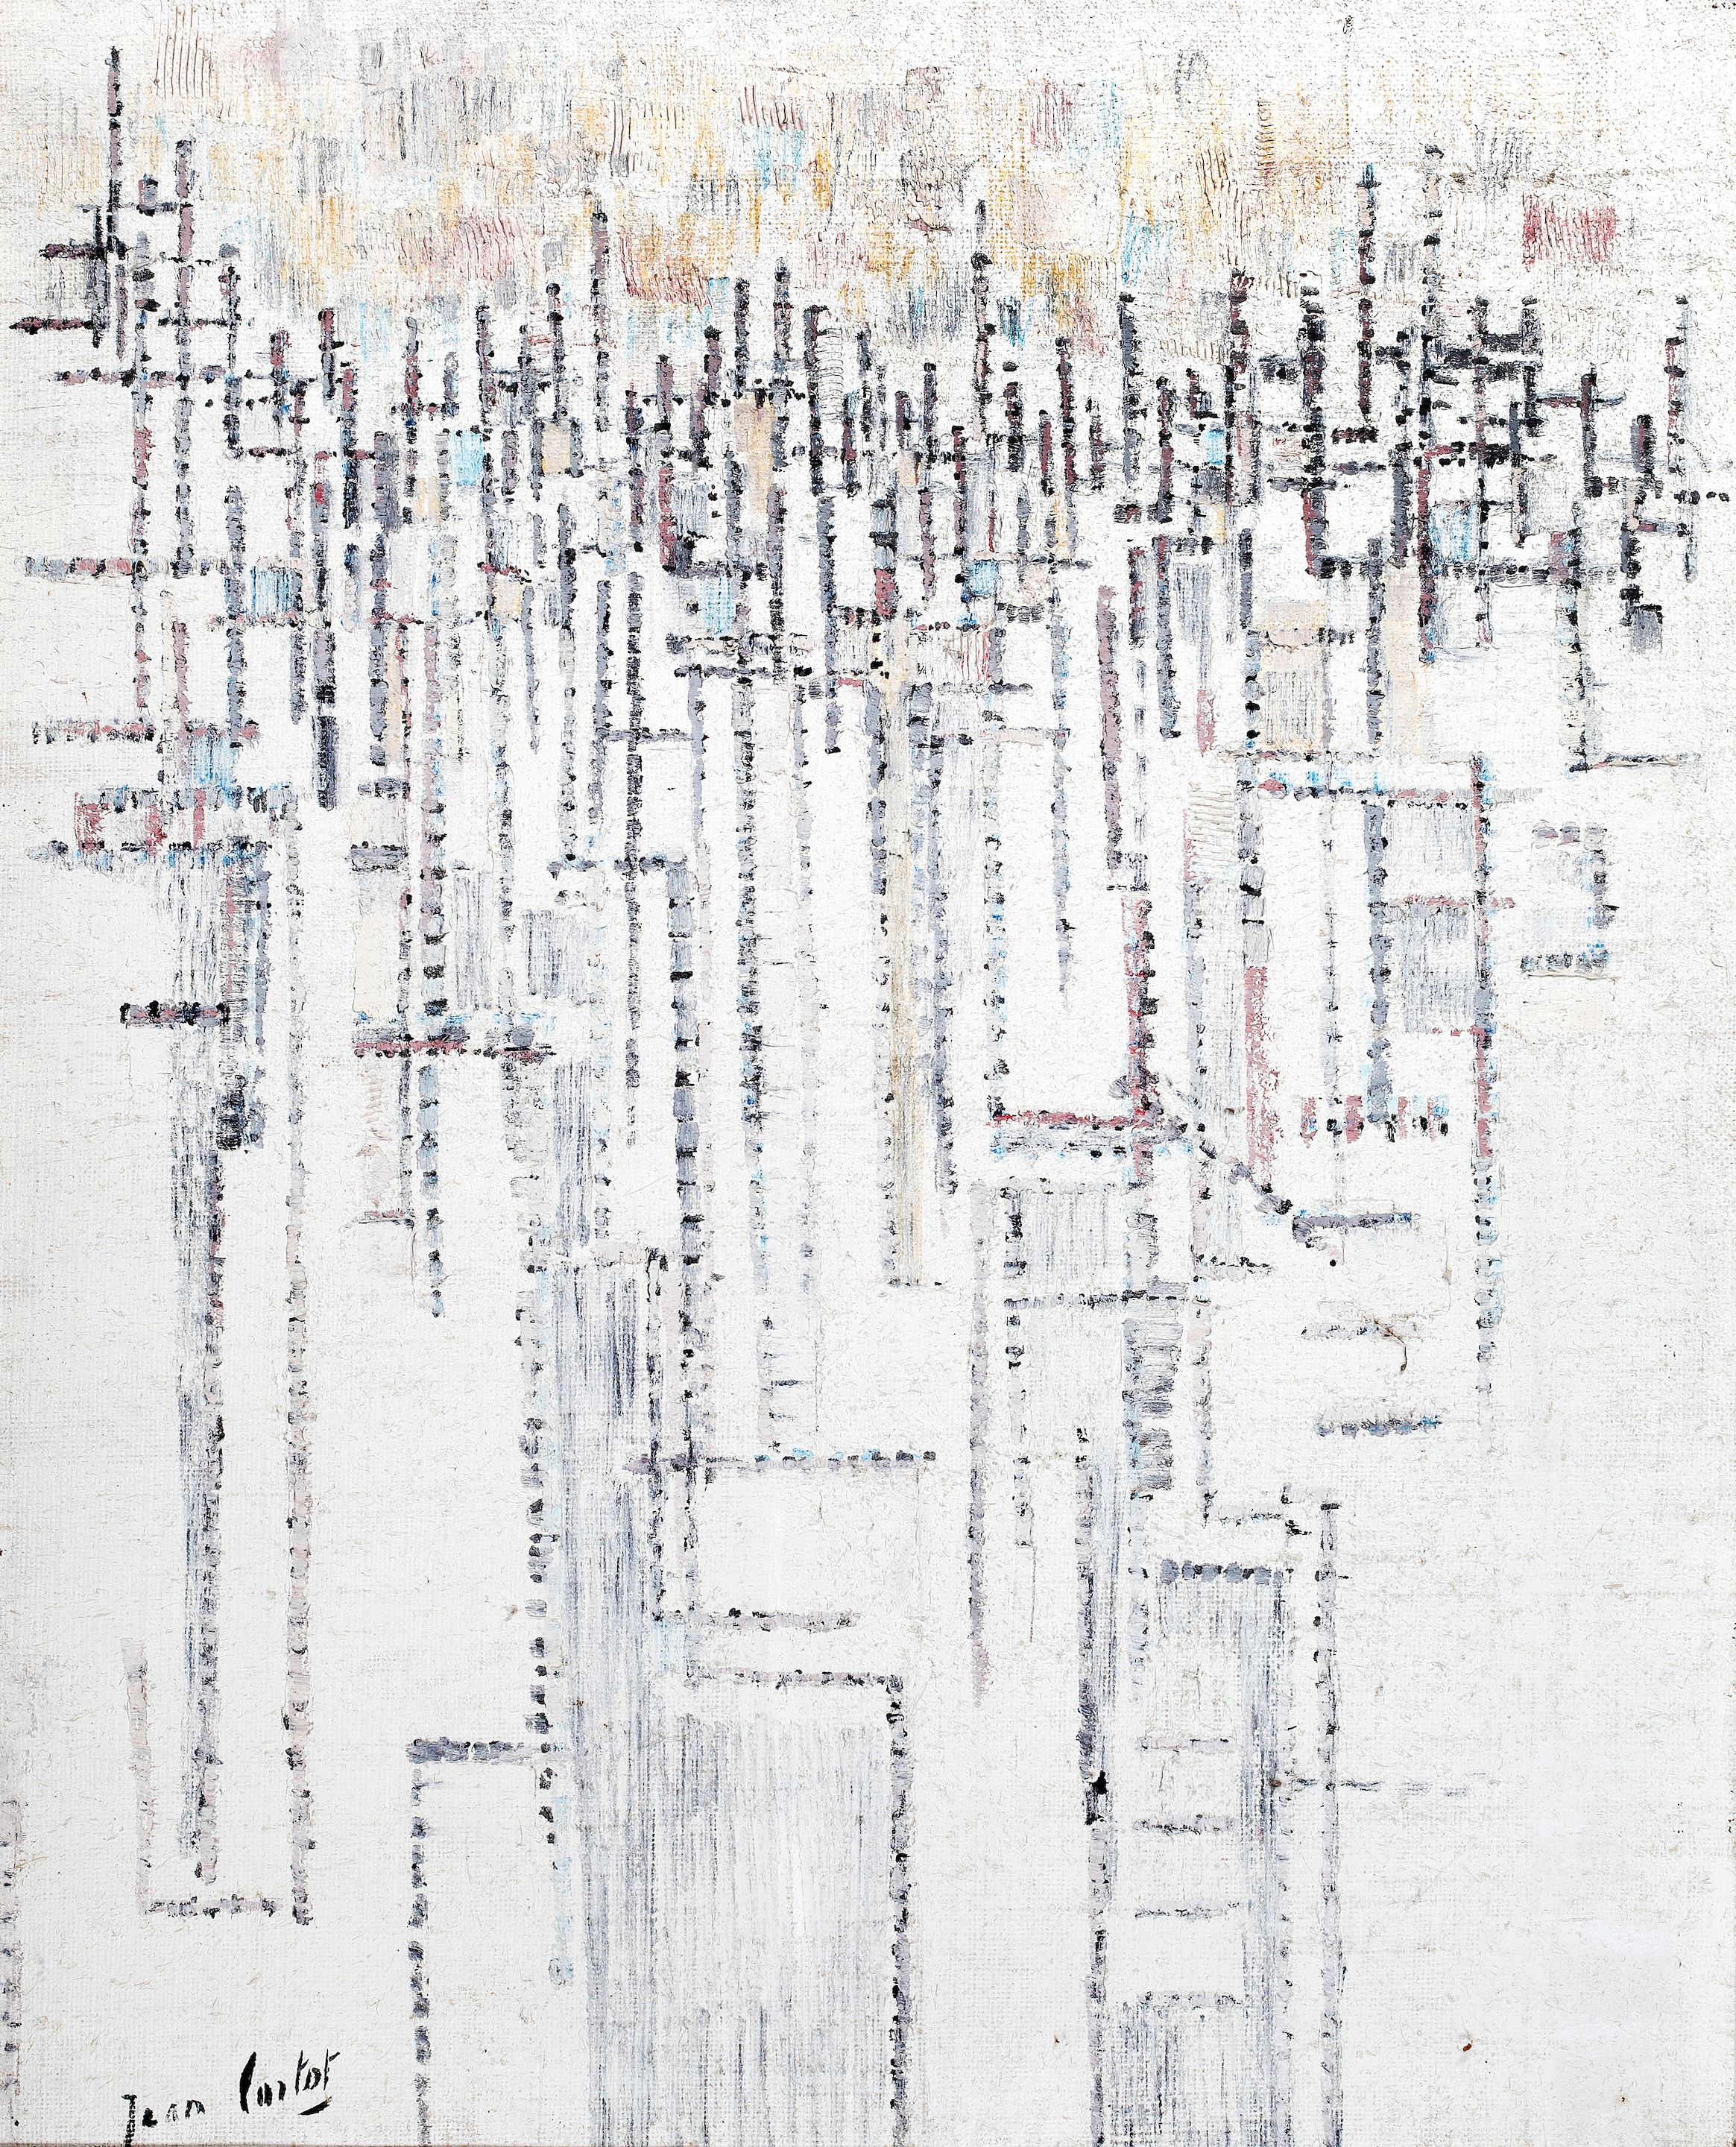 Jean Cortot